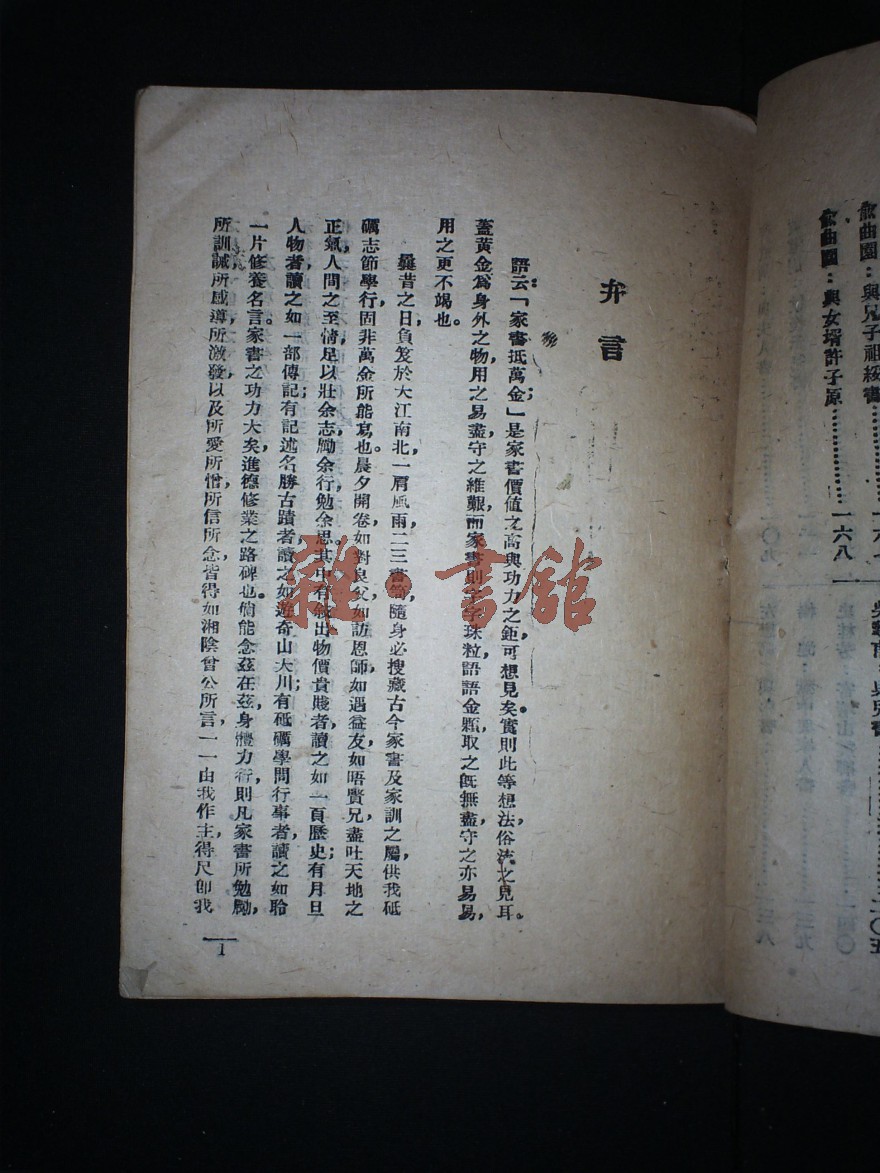 弁言
語云:「家書抵萬金」;是家書價値之高與功力之鉅可想見矣。實則此等想法俗流之見耳。
蓋黃金爲身外之物,用之易盡,守之維艱;而家書則字字珠粒,語語金顆,取之旣無盡,守之亦易易,
用之更不竭也。
曩昔之日,負笈於大江南北,一肩風雨,二三書笥,隨身必搜藏古今家書及家訓之屬,供我砥
礪志節學行,固非萬金所能寫也。晨夕開卷,如對良父,如訪恩師,如遇益友,如晤賢兄,盡吐天地之
正氣,人間之至情,足以壯余志,勵余行,勉余思。其中有敘出物價貴賤者,讀之如一頁歷史;有月旦
人物者,讀之如一部傳記;有記述名勝古蹟者,讀之如遊奇山大川;有砥礪學問行事者,讀之如聆
一片修養名言。家書之功力大矣,進德修業之路碑也。倘能念茲在茲,身體力行,則凡家書所勉勵,
所訓誡,所感導,所激發,以及所愛所憎,所信所念,皆得如湘陰曾公所言,一一由我作主,得尺卽我
1
俞曲園:與兄子祖綏書…………一六七
俞曲園:與女壻許子原…………一六八
雜·書館